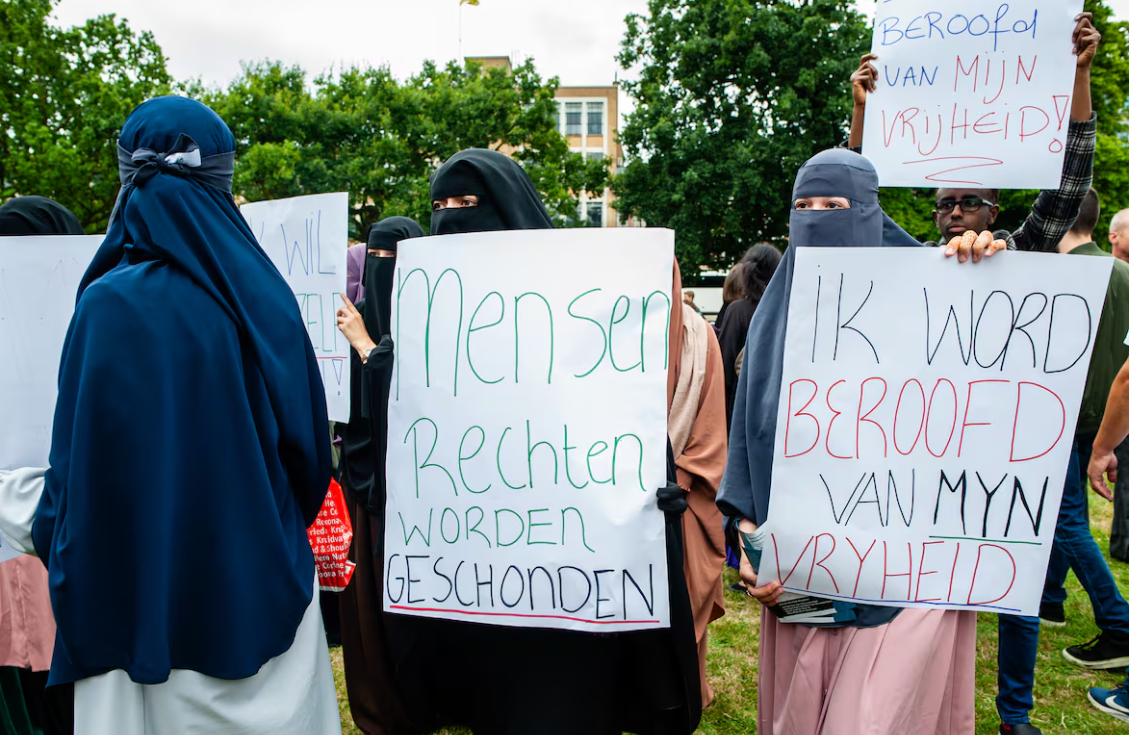 BEROOfd
VAN MIJN
VRIJHEID!
WIL
Mensen
Rechten
WORDEN
GESCHONDEN
IK WORD
BEROOFD
VAN MYN
VRYHEID